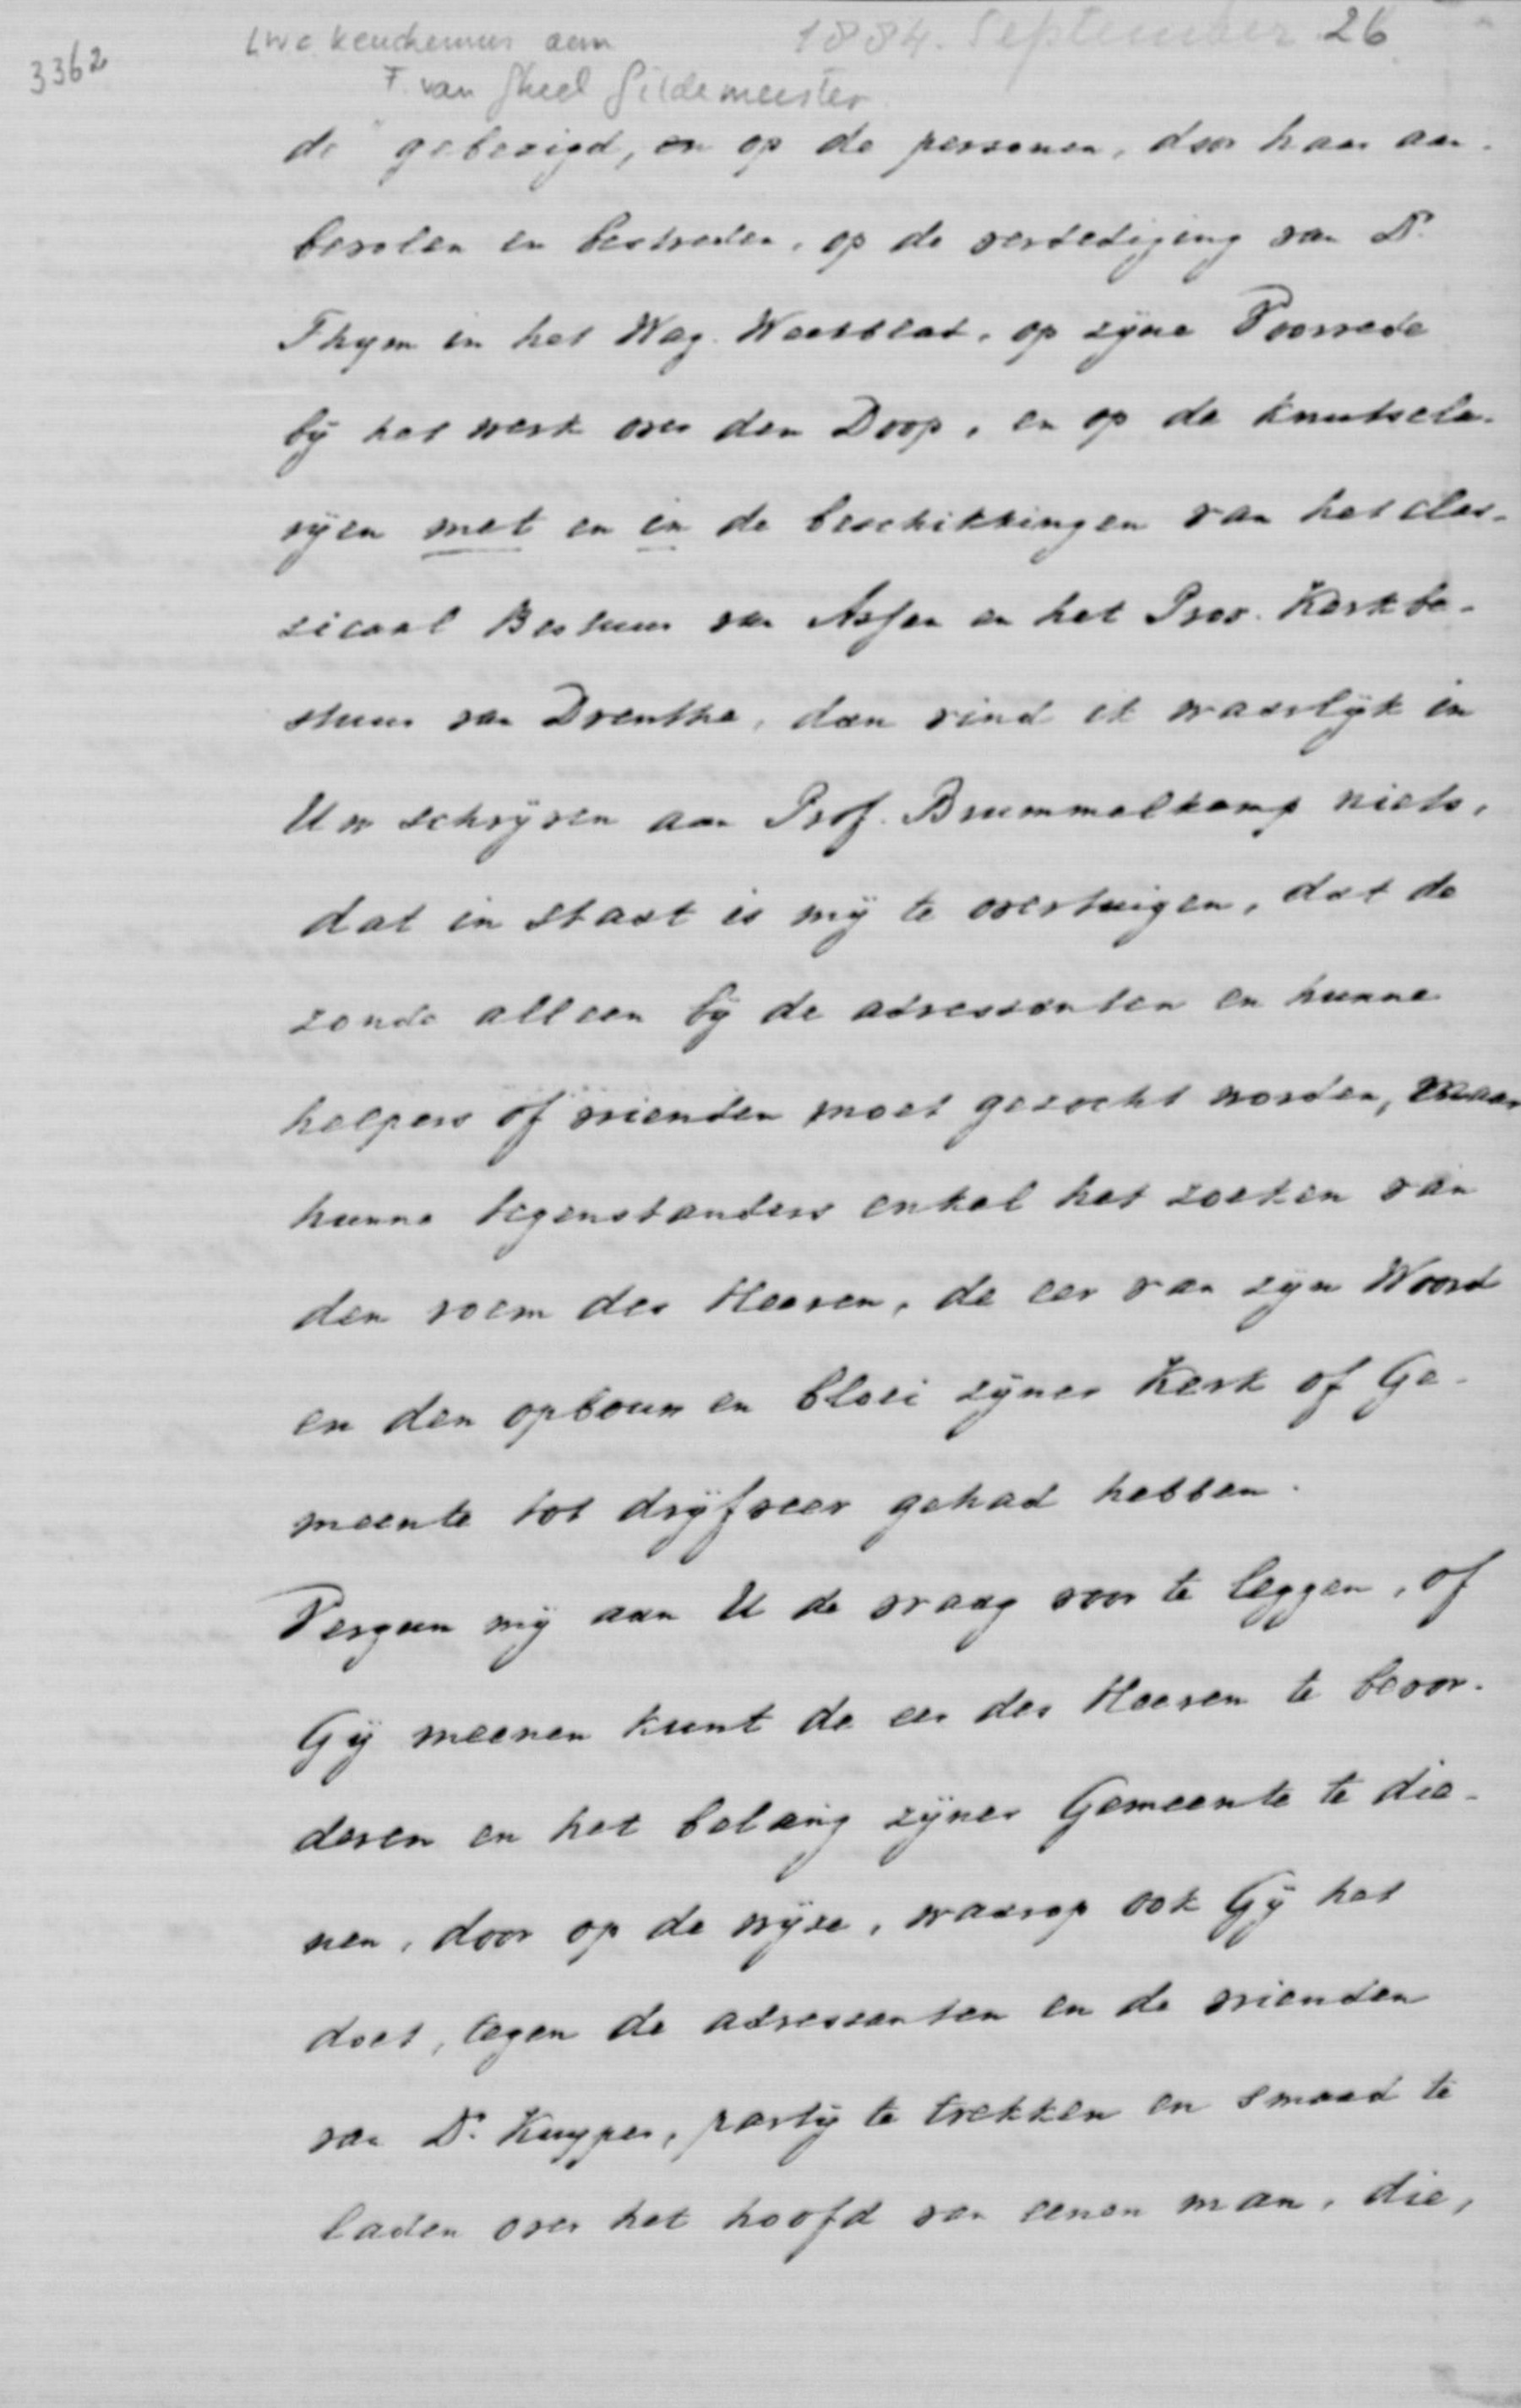 3362
LWC Keuchenius aan 1884. September 26
F. van Gheel Gildemeester
de" gebezigd, en op de personen, door haar aan-
bevolen en bestreden, op de verdediging van Dr.
Thym in het Wag. Weekblad, op zijne Voorrede
bij het werk over den Doop, en op de knutsela-
rijen met en in de beschikkingen van het clas-
sicaal Bestuur van Assen en het Prov. Kerkbe-
stuur van Drenthe, dan vind ik waarlijk in
Uw schrijven aan Prof. Brummelkamp niets,
dat in staat is mij te overtuigen, dat de
zonde alleen bij de adressanten en hunne
helpers of vrienden moet gezocht worden, maar
hunne tegenstanders enkel het zoeken van
den roem des Heeren, de eer van zijn Woord
en den opbouw en bloei zijner Kerk of Ge-
meente tot drijfveer gehad hebben.
Vergun mij aan U de vraag voor te leggen, of
Gij meenen kunt de eer des Heeren te bevor-
deren en het belang zijner Gemeente te die-
nen, door op de wijze, waarop ook Gij het
doet, tegen de adressanten en de vrienden
van Dr. Kuyper, partij te trekken en smaad te
laden over het hoofd van eenen man, die,